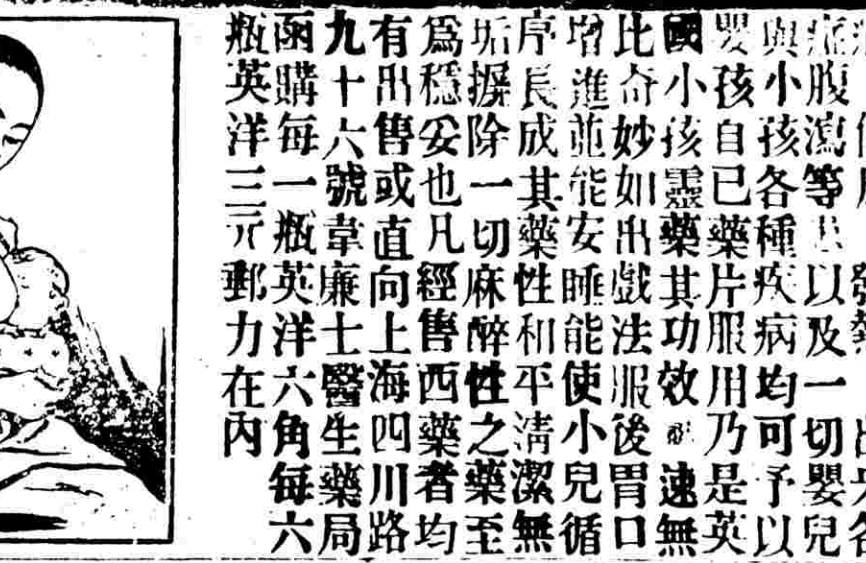 症腹瀉等以及一切嬰兒
與小孩各種疾病均可予以
嬰孩自已藥片服用乃是英
國小孩靈藥其功效速無
比奇妙如出戲法服後胃口
增進並能安睡能使小兒循
序長成其藥性和平清潔無
垢摒除一切麻醉性之藥至
爲穩妥也凡經售西藥者均
有出售或直向上海四川路
九十六號韋廉士醫生藥局
函購每一瓶英洋六角每六
瓶英洋三元郵力在內